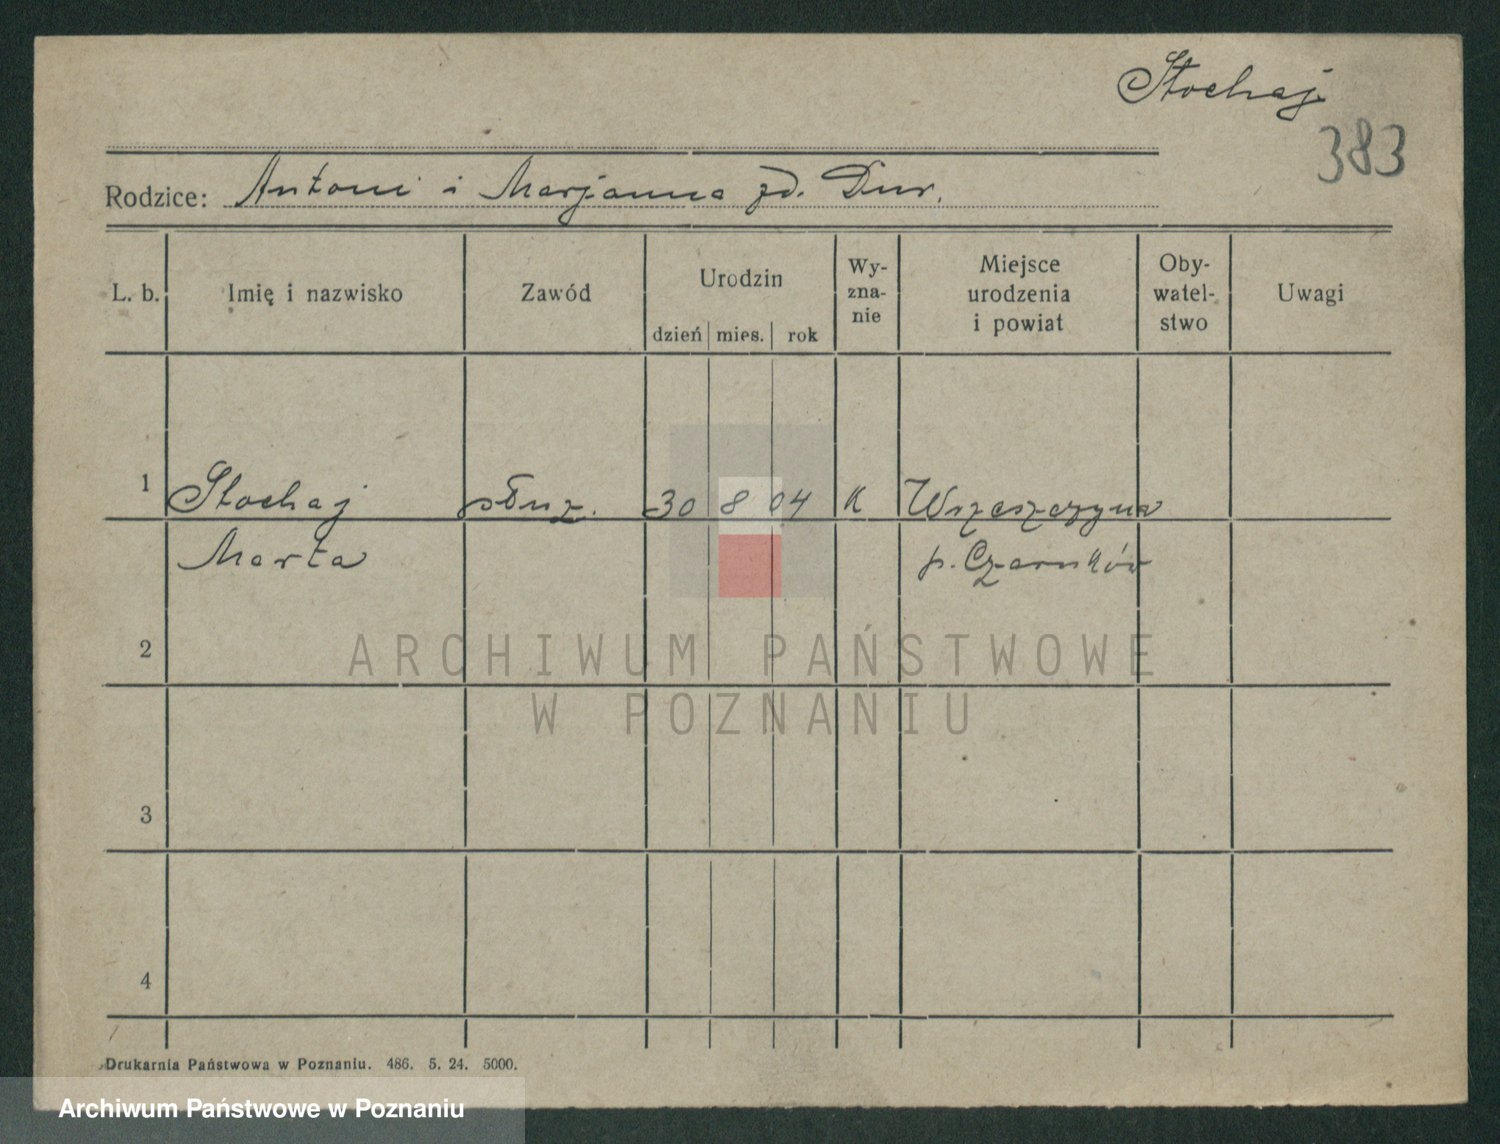 Stochaj
383
Rodzice: Antoni i Marjanna zd. Dur.
L. b. Imię i nazwisko Zawód Urodzin dzień mies. rok Wy-zna-nie Miejsce urodzenia i powiat Oby-watel-stwo Uwagi
1 Stochaj służ. 30 8 04 K
Marta p. Czarnków
2
ARCHIWUM PAŃSTWOWE
W POZNANIU
3
4
Drukarnia Państwowa w Poznaniu. 486. 5. 24. 5000.
Archiwum Państwowe w Poznaniu